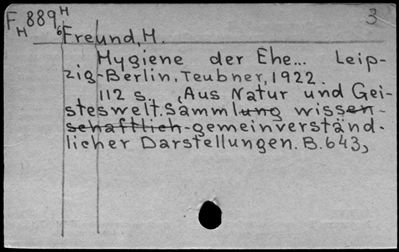 F 889 H 3
H 6 Freund, H.
Hygiene der Ehe... Leip-
zig-Berlin, Teubner, 1922.
112 s. „Aus Natur und Gei-
steswelt. Sammlung wissen-
schaftlich-gemeinverständ-
licher Darstellungen. B. 643,